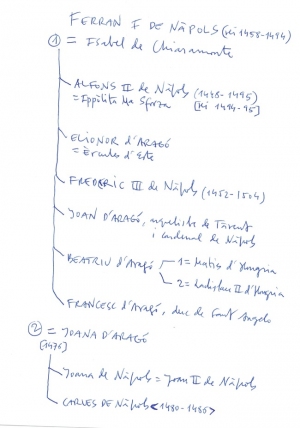 FERRAN I DE NÀPOLS (rei 1458-1494)
① = Isabel de Chiaramonte
ALFONS II de Nàpols (1448-1495)
= Ippòlita Ma Sforza [rei 1494-95]
ELIONOR d'ARAGÓ
= Èrcules d'Este
FREDERIC III de Nàpols (1452-1504)
JOAN D'ARAGÓ, arquebisbe de Tàrent
i cardenal de Nàpols
BEATRIU d'Aragó 1= Maties d'Hongria
2= Ladislau II d'Hongria
FRANCESC d'Aragó, duc de Sant Angelo
② = JOANA D'ARAGÓ
[1476]
Joana de Nàpols = Joan II de Nàpols
CARLES DE Nàpols <1480-1486>